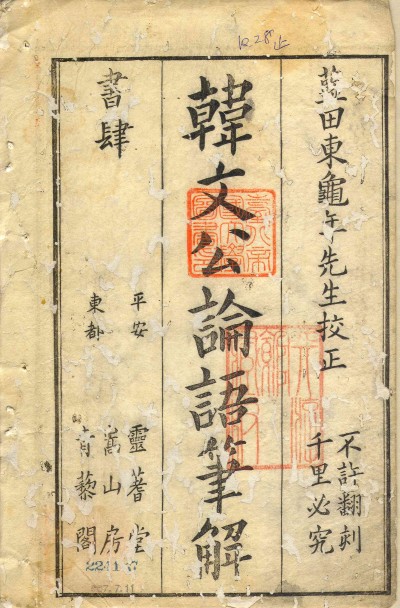 藍田東龜年先生挍正
不許翻刻
千里必究
韓文公論語筆解
書肆
平安
東都
靈蓍堂
嵩山房
青藜閣